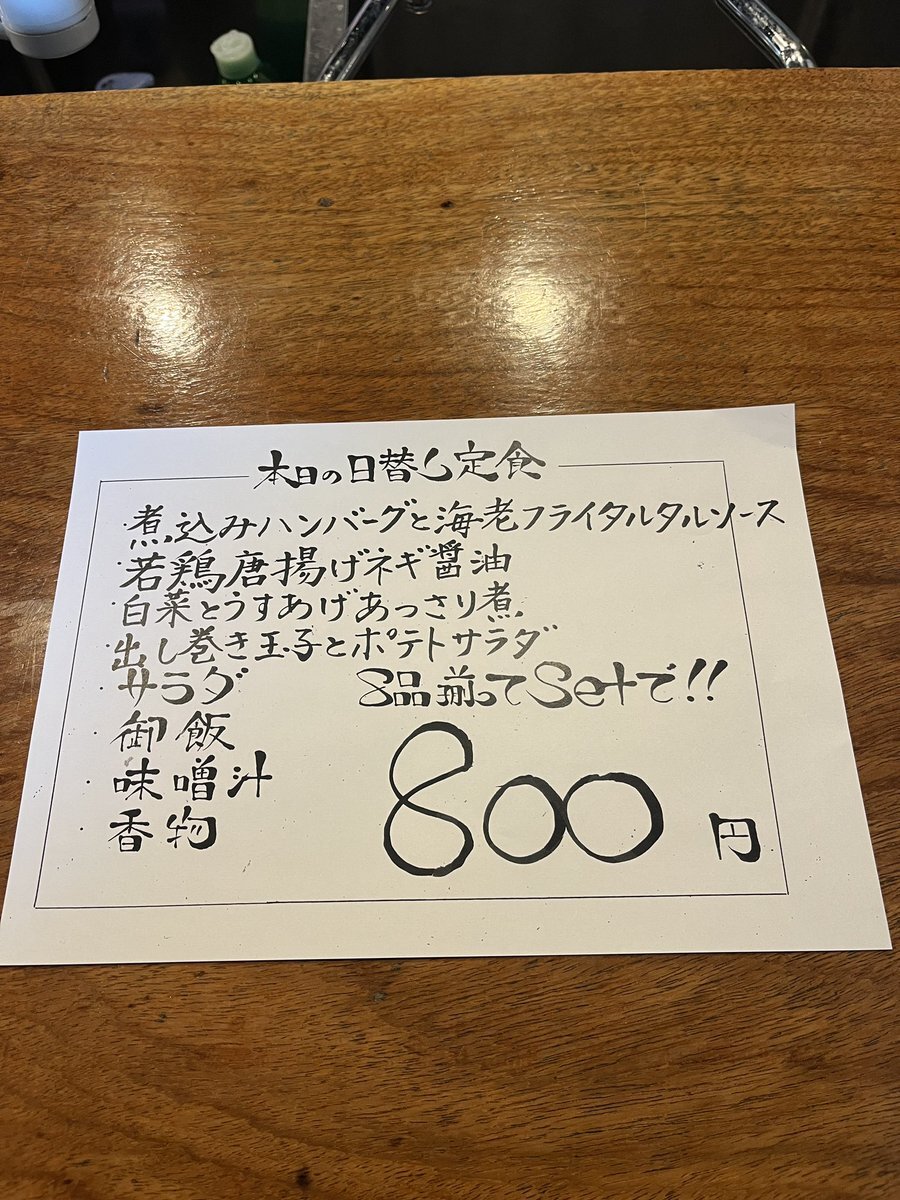 本日の日替し定食
煮込みハンバーグと海老フライタルタルソース
若鶏唐揚げネギ醤油
白菜とうすあげあっさり煮
出し巻き玉子とポテトサラダ
サラダ
8品揃ってSetで!!
御飯
味噌汁
香物
800円